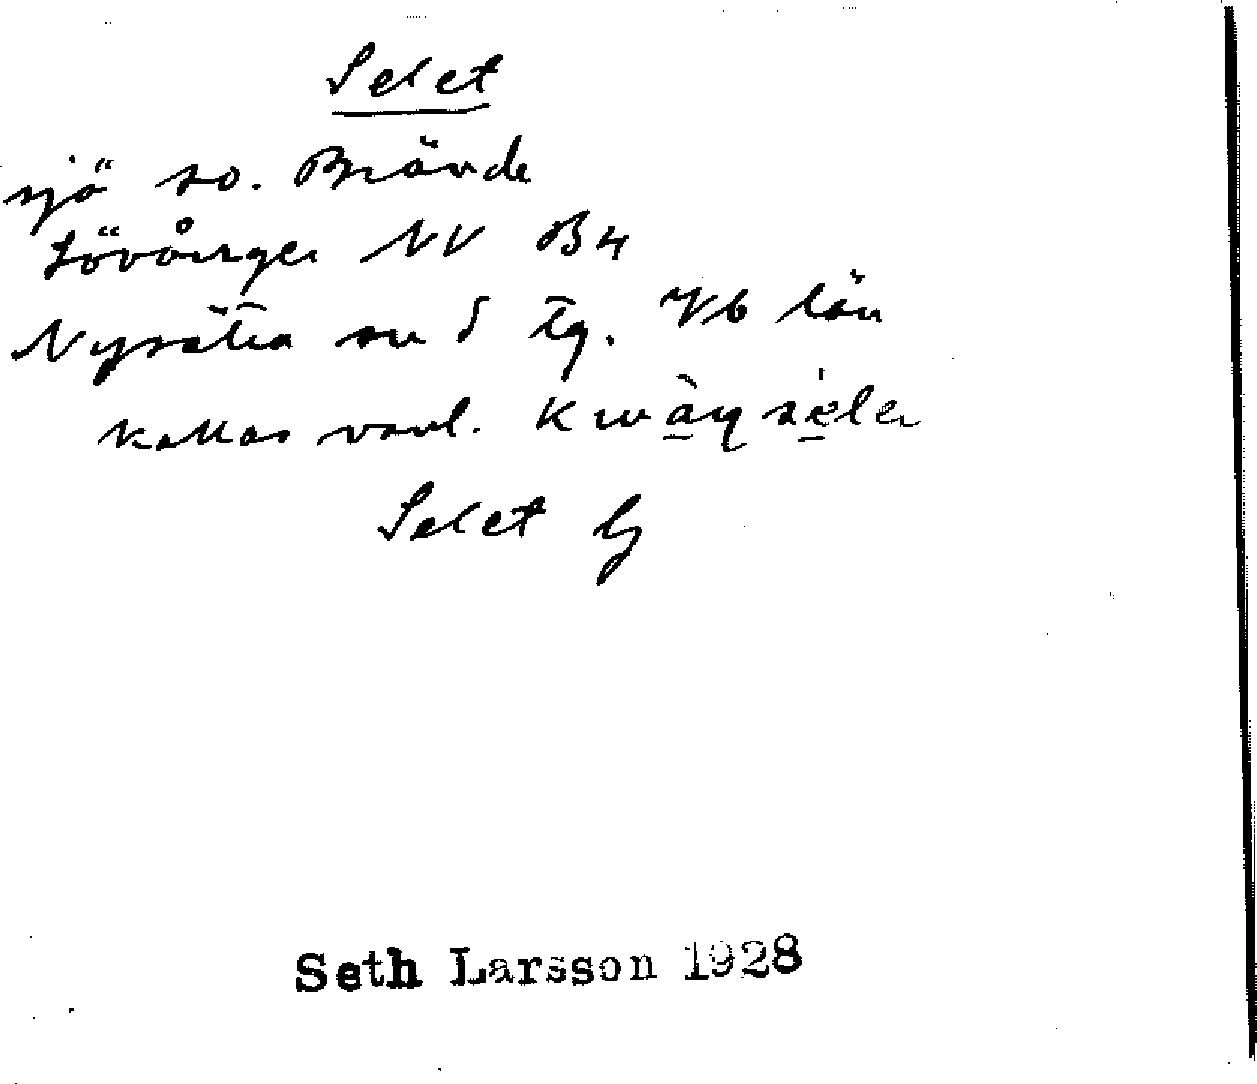 Selet
sjö so. Brände
Lövånger NV B4
Nysätra sn S tg. Vb län
kallas vanl. Kwàṇsèle
Selet G
Seth Larsson 1928